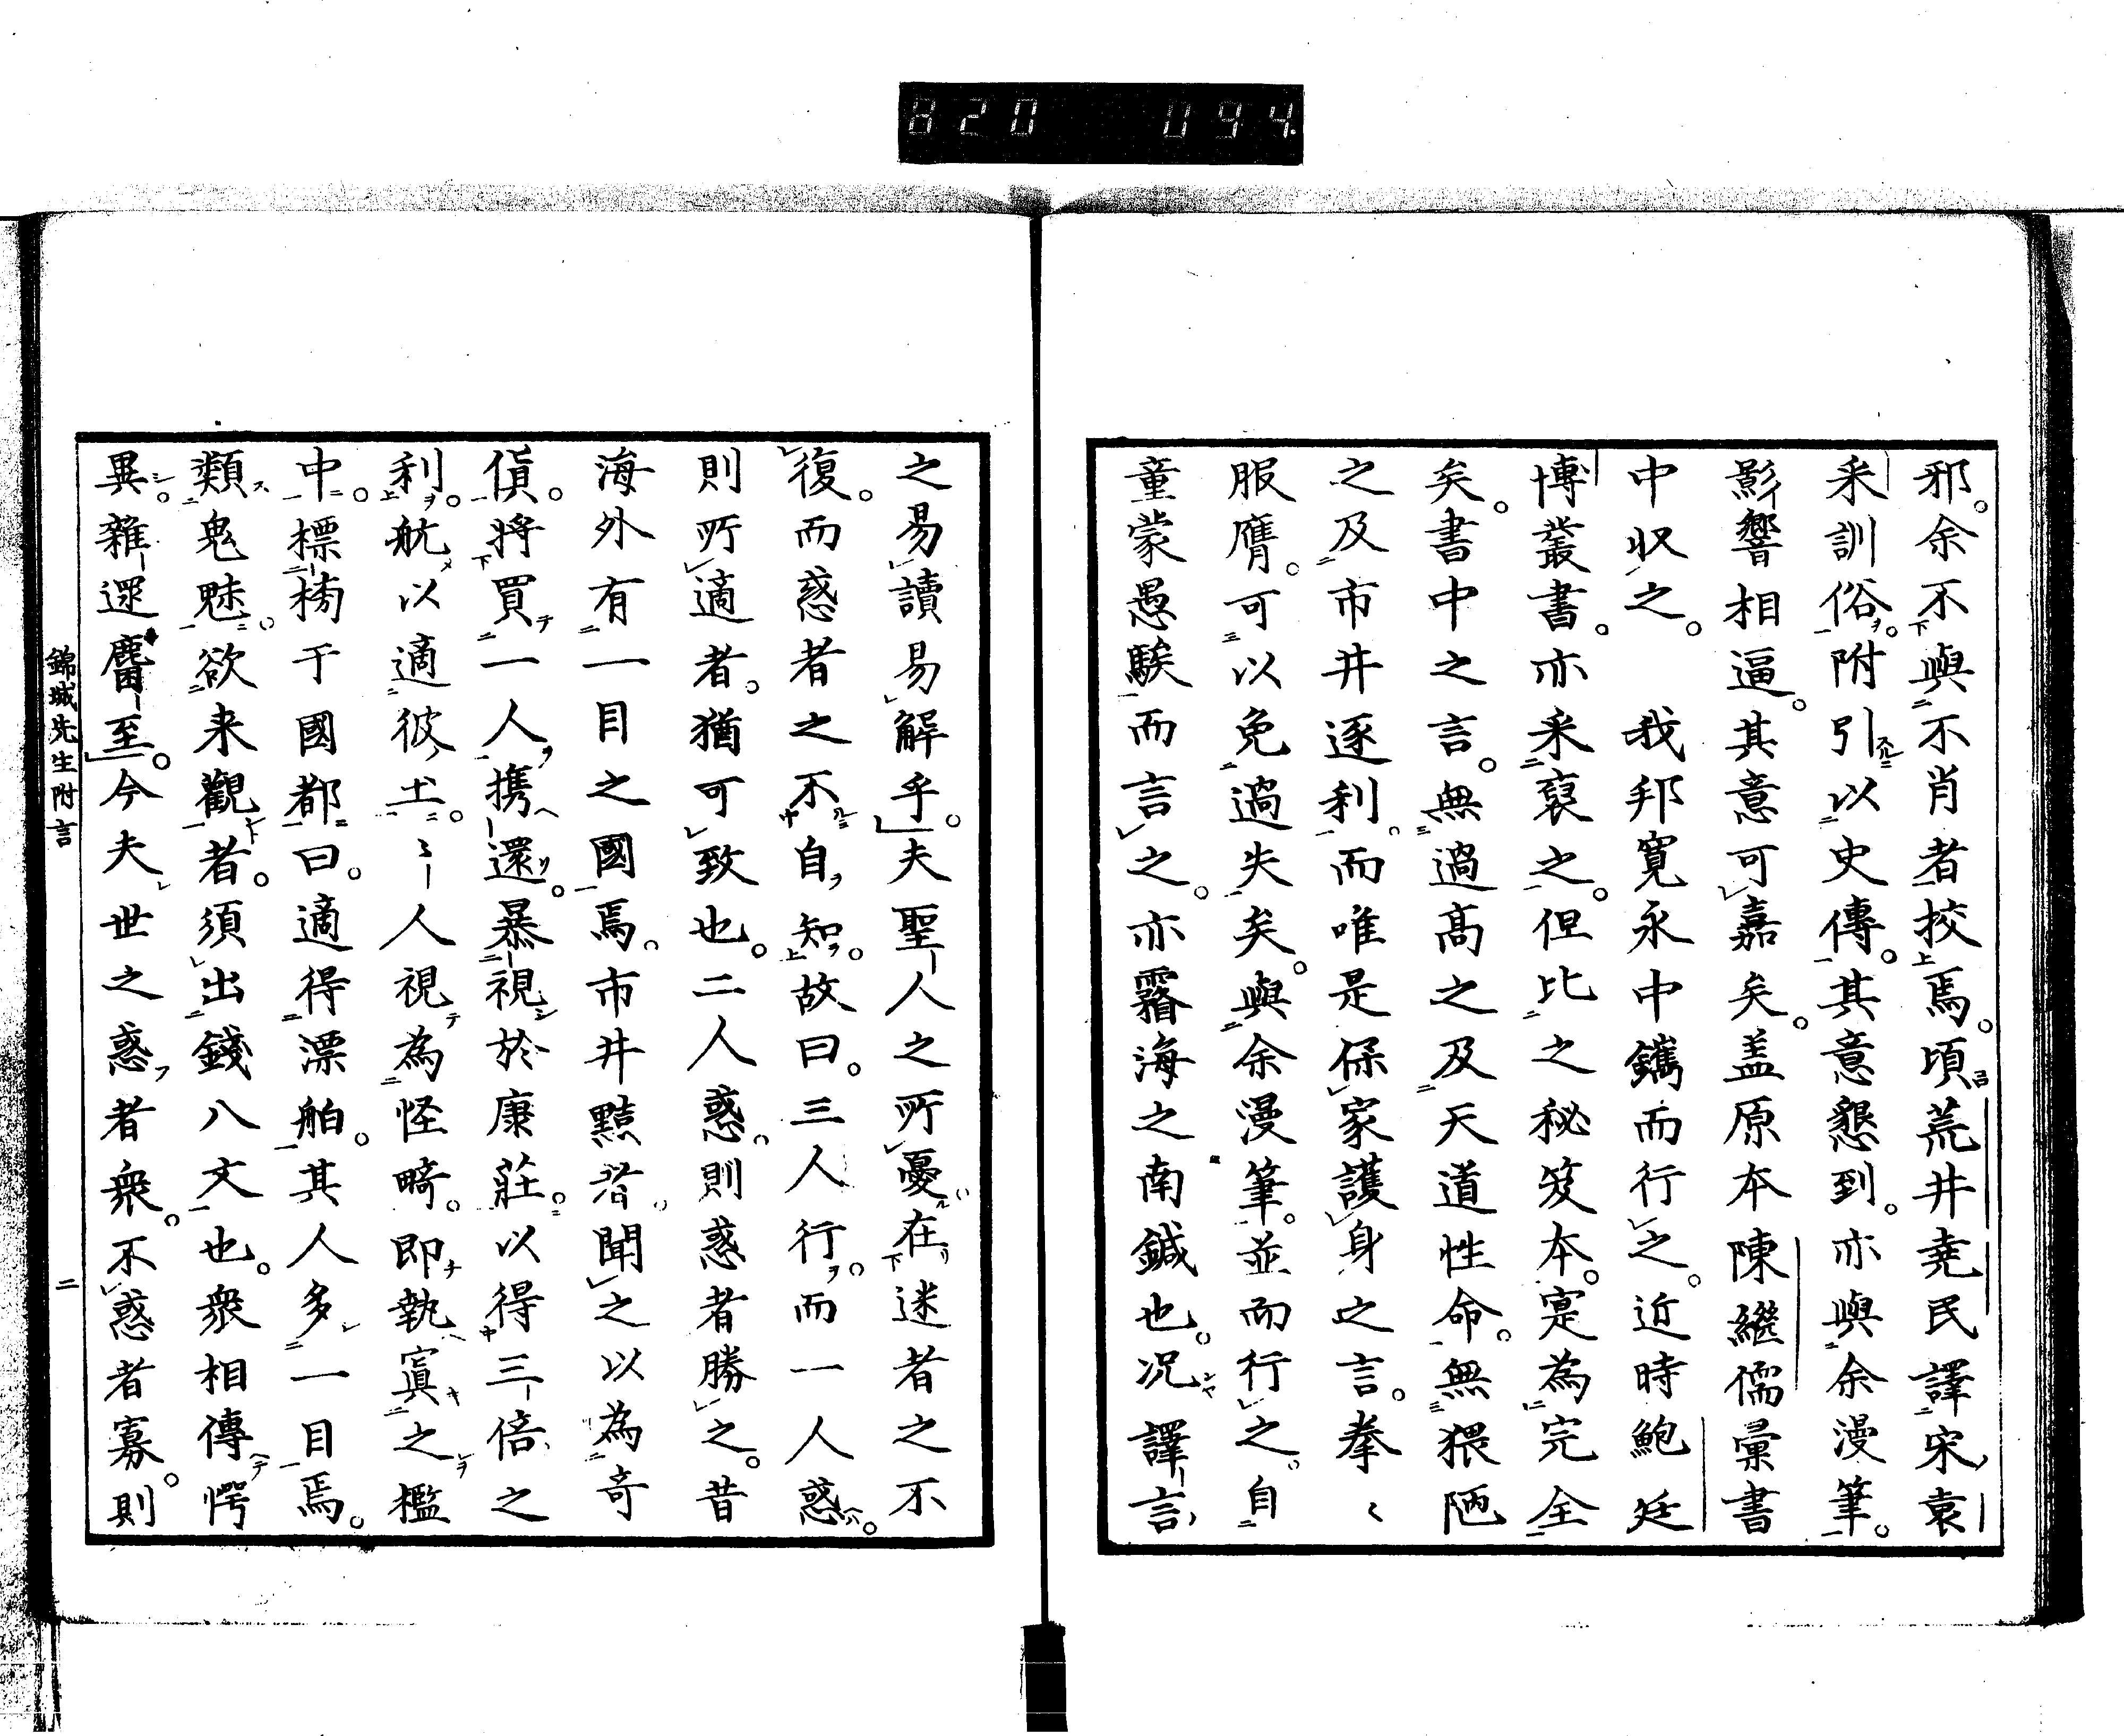 820 094
邪。余不與不肖者挍焉。頃荒井堯民譯宋袁
采訓俗。附引以史傳。其意懇到。亦與余漫筆。
影響相逼。其意可嘉矣。盖原本陳繼儒彙書
中収之。我邦寛永中鐫而行之。近時鮑廷
博叢書。亦采裒之。但比之秘笈本。寔為完全
矣。書中之言。無過高之及天道性命。無猥陋
之及市井逐利。而唯是保家護身之言。拳〻
服膺。可以免過失矣。與余漫筆。並而行之。自
童蒙愚騃而言之。亦霧海之南鍼也。况譯言
之易讀易解乎。夫聖人之所憂在迷者之不
復。而惑者之不自知。故曰。三人行。而一人惑。
則所適者。猶可致也。二人惑。則惑者勝之。昔
海外有一目之國焉。市井黠者。聞之以為奇
貨。將買一人携還。暴視於康莊。以得三倍之
利。航以適彼土。〻人視為怪畸。即執寘之檻
中。標榜于國都。曰。適得漂舶。其人多一目焉。
類鬼魅。欲来觀者。須出錢八文也。衆相傳愕
異。雜遝麕至。今夫世之惑者衆。不惑者寡。則
錦城先生附言 二